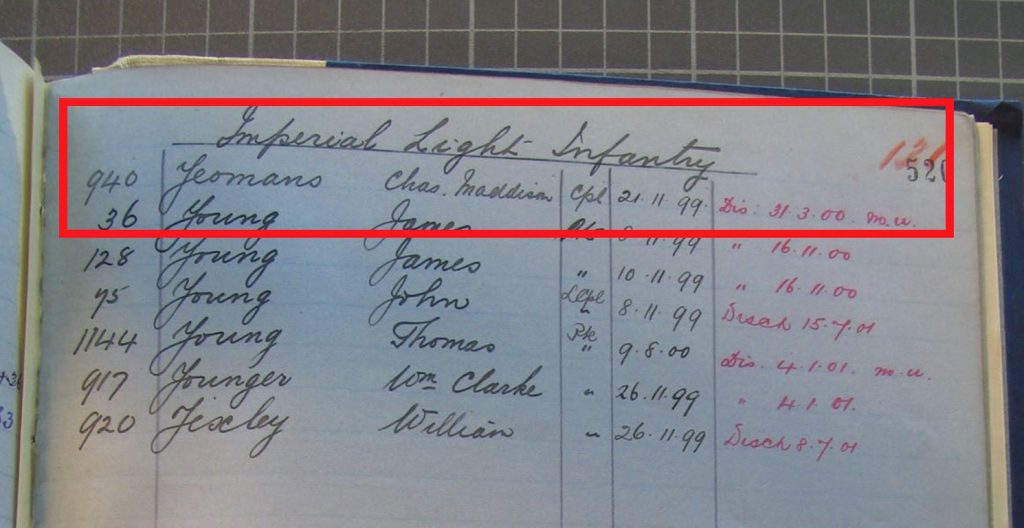 Imperial Light Infantry
526
940 Yeomans Chas. Maddison Cpl 21.11.99. Dis. 31.3.00. m.u.
36 Young James Pte 8.11.99 " 16.11.00
128 Young James " 10.11.99 " 16.11.00
75 Young John LCpl 8.11.99 Disch 15.7.01
1144 Young Thomas Pte 9.8.00 Dis. 4.1.01. m.u.
917 Younger Wm Clarke " 26.11.99 " 4.1.01.
920 Yexley William " 26.11.99 Disch 8.7.01